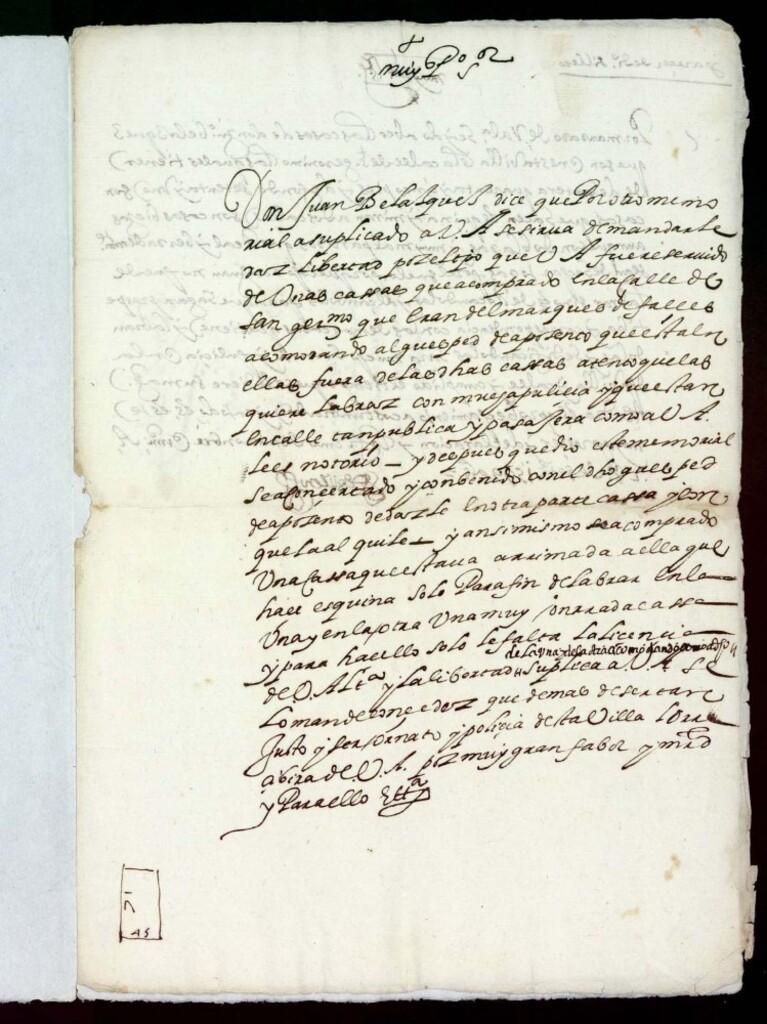 †
muy P.º S.ºr
Don Juan Belasques dice que Por otro memo
rial a suplicado a V A se sirua de mandarle
daz libertad poz el tpo que V A fuere seruido
de Unas cassas que a comprado en la Calle de
san germo que Eran del marques de falces
acomodando al guesped de aposento que esta en
ellas fuera de las dhas cassas atento que las
quiere labraz con mucha pulicia y que estan
En calle tan publica y pasaxera como a V A.
le es notorio – y despues que dio este memorial
se a Concertado y conbenido con el dho guesped
de aposento de dazle En otra parte cassa y en
que la al quile – y ansi mismo se a comprado
Una Cassa que estaua arrimada a ella que
hace esquina solo Para fin de labrar En la
Una y en la otra Una muy onrrada cassa
y para hacello solo le falta la licencia
de la una y de la otra acomodando como dho es
de V. Alta y la libertad suplica a V. A. se
lo mande conçedez que demas de ser tan
Justo y ser ornato y poliçia desta Villa lo rre
abira de V. A. poz muy gran fabor y mrd
y Para ello Etta
71
45